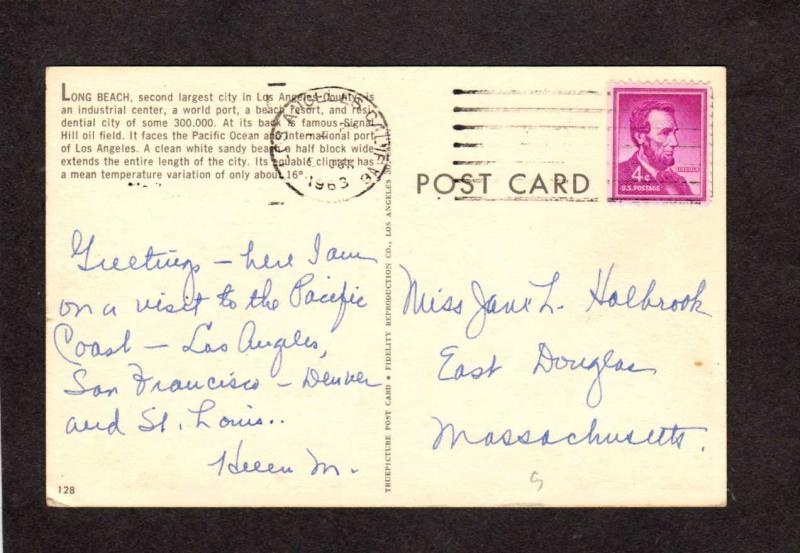 LONG BEACH, second largest city in Los Angeles County is
an industrial center, a world port, a beach resort, and resi-
dential city of some 300,000. At its back is famous Signal
Hill oil field. It faces the Pacific Ocean and International port
of Los Angeles. A clean white sandy beach a half block wide
extends the entire length of the city. Its equable climate has
a mean temperature variation of only about 16°.
LOS ANGELES, CALIF.
1963
4¢
LINCOLN
U.S. POSTAGE
POST CARD
Greetings – here I am
on a visit to the Pacific
Coast – Los Angeles,
San Francisco – Denver
and St. Louis..
Helen M.
Miss Jane L. Holbrook
East Douglas
Massachusetts.
TRUEPICTURE POST CARD • FIDELITY REPRODUCTION CO., LOS ANGELES
128